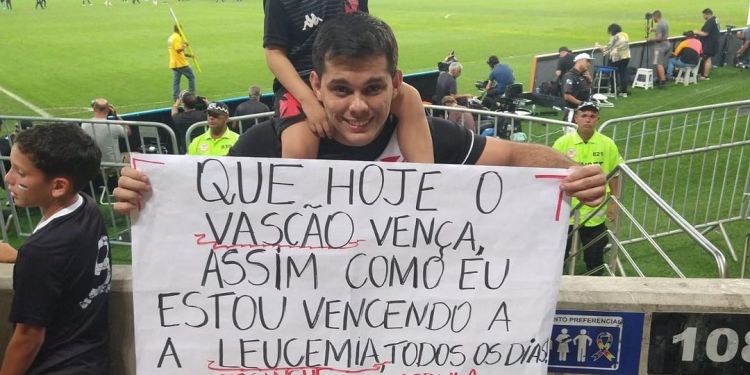 QUE HOJE O
VASCÃO VENÇA,
ASSIM COMO EU
ESTOU VENCENDO A
A LEUCEMIA, TODOS OS DIAS
108